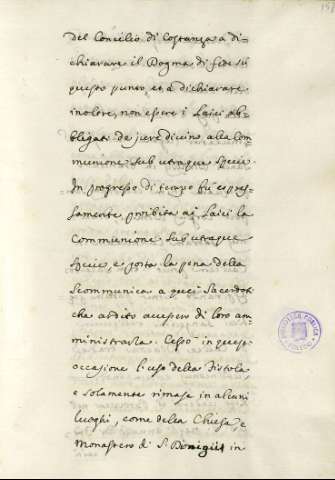 del Concilio di Costanza a di=
chiarare il Dogma di fede su
questo punto, et a dichiarare
inoltre, non essere i Laici ob=
bligati de jure divino alla Com
munione sub utraque specie.
In progresso di tempo fu espres=
samente proibita ai Laici la
Communione sub utraque
specie, e posta la pena della
Scommunica a quei Sacerdoti
che ardito avessero di loro am
ministrarla. Cessò in quest'
occasione l'uso della Fistola
e solamente rimase in alcuni
luoghi, come della Chiesa, e
Monastero di S. Dionigii in